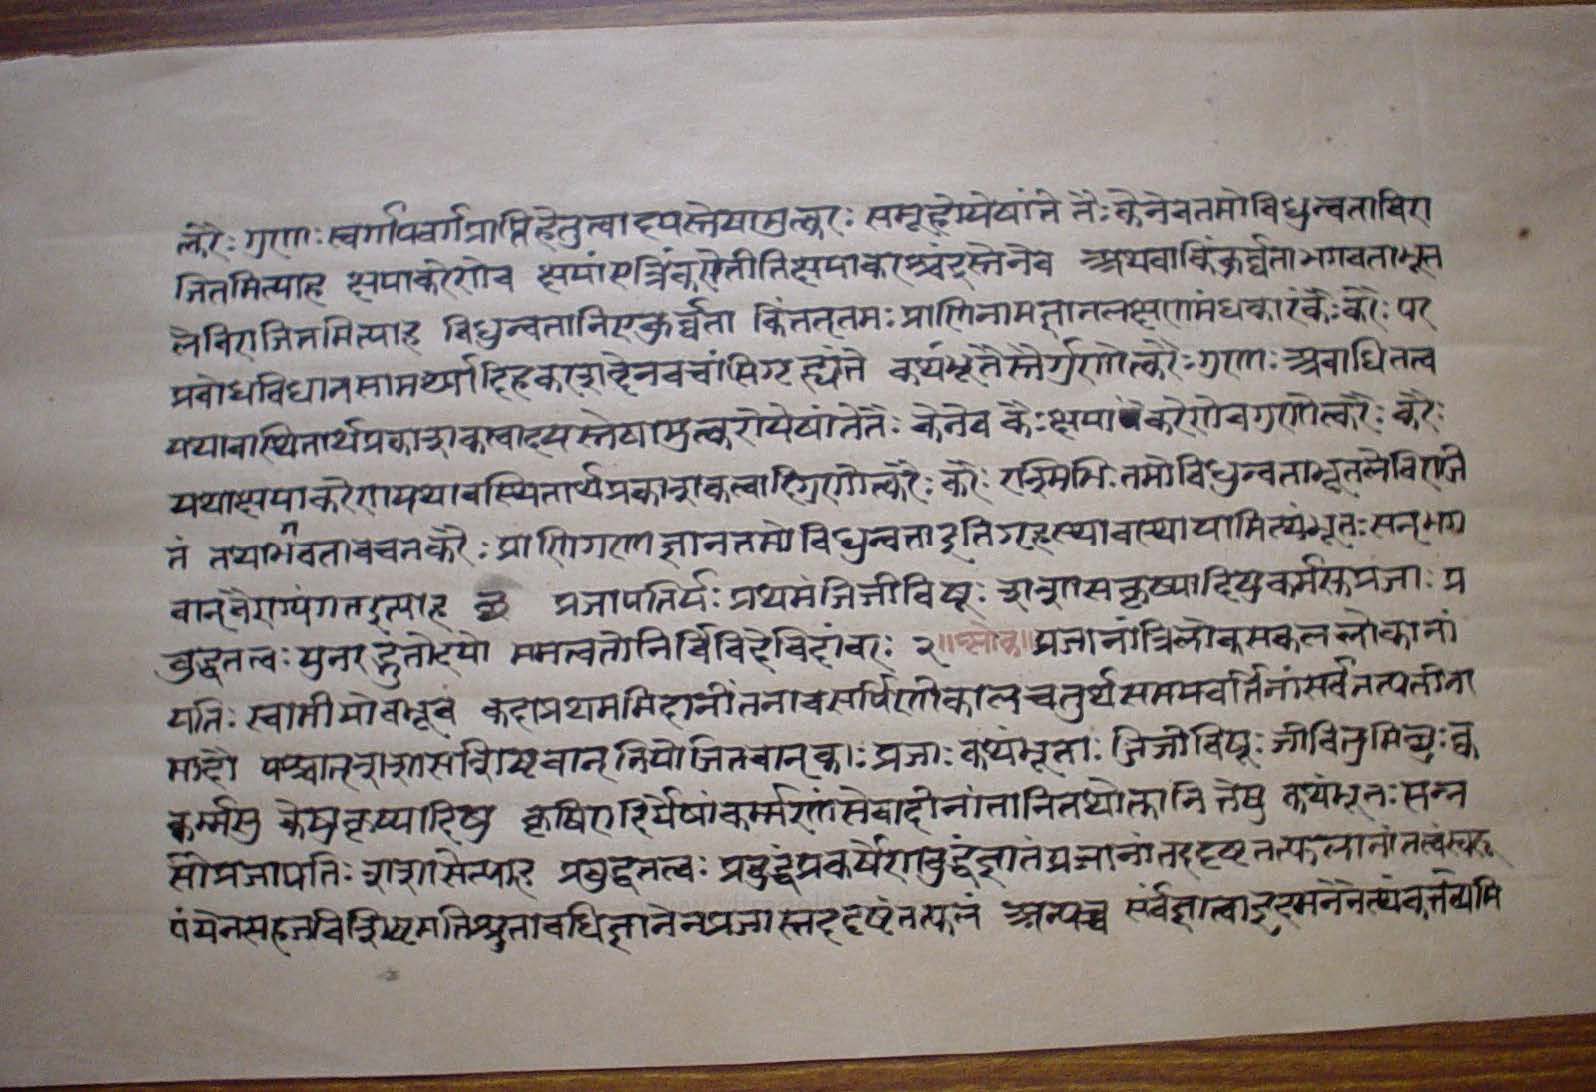 त्करैः गुणाः स्वर्गापवर्गप्राप्तिहेतुत्वादयस्तेषामुत्करः समूहोयेषांते तैः केनेवतमोविधुन्वताविरा
जितमित्याह क्षपाकरेणेव क्षपांरात्रिंकरोतीतिक्षपाकरश्चंद्रस्तेनेव अथवाकिंकुर्व्वताभगवताभूत
लेविराजितमित्याह विधुन्वतानिराकुर्व्वता किंतत्तमः प्राणिनामज्ञानलक्षणमंधकारंकैःकरैः पर
प्रबोधविधानसामर्थ्यादिहकरशब्देनवचांसिगृह्यंते कथंभूतैस्तैर्गुणोत्करैः गुणाः अबाधितत्व
यथावस्थितार्थप्रकाशकत्वादयस्तेषामुत्करोयेषांतेतैः केनेव कैः क्षपाकरेणेवगुणोत्करैः करैः
यथाक्षपाकरेणयथावस्थितार्थप्रकाशकत्वादिगुणोत्करैः करैः रश्मिभिः तमोविधुन्वताभूतलेविराजि
तं तथाभगवतावचनकरैः प्राणिगणाज्ञानतमोविधुन्वता इतिगृहस्थावस्थायामित्थंभूतः सन् भग
वान् वैराग्यंगतइत्याह प्रजापतिर्यः प्रथमंजिजीविषूः शशासकृष्यादिषुकर्मसुप्रजाः प्र
बुद्धतत्वः पुनरद्भुतोदयो ममत्वतोनिर्विविदेविदांवरः २ ॥श्लोक॥ प्रजानांत्रिलोकसकललोकानां
पतिः स्वामीयोबभूव कदाप्रथममिदानींतनावसर्पिणीकालचतुर्थसमयवर्तिनांसर्वतत्पतीना
मादौ पश्चात्शशासशिष्टवान् नियोजितवान् काः प्रजाः कथंभूताः जिजीविषूः जीवितुमिच्छूः क्व
कर्म्मसु केषुकृष्यादिषु कृषिरादिर्येषांकर्म्मणांसेवादीनांतानितथोक्तानि तेषु कथंभूतः सन्न
सौप्रजापतिः शशासेत्याह प्रबुद्धतत्वः प्रबुद्धंप्रकर्षेणबुद्धंज्ञातंप्रजानांतददृष्टतत्फलानांतत्वंस्वरू
पंयेनसहजविशिष्टमतिश्रुतावधिज्ञानेनप्रजास्तददृष्टंतत्फलं अन्यच्च सर्वंज्ञात्वाइदमनेनेत्थंकर्त्तव्यमि